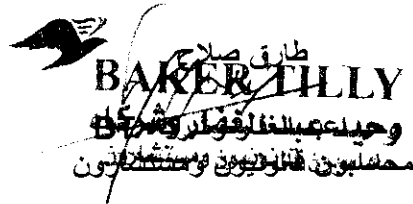 طارق صلاح
BAKER TILLY
وحيد عبدالغفار وشركاه
محاسبون قانونيون ومستشارون